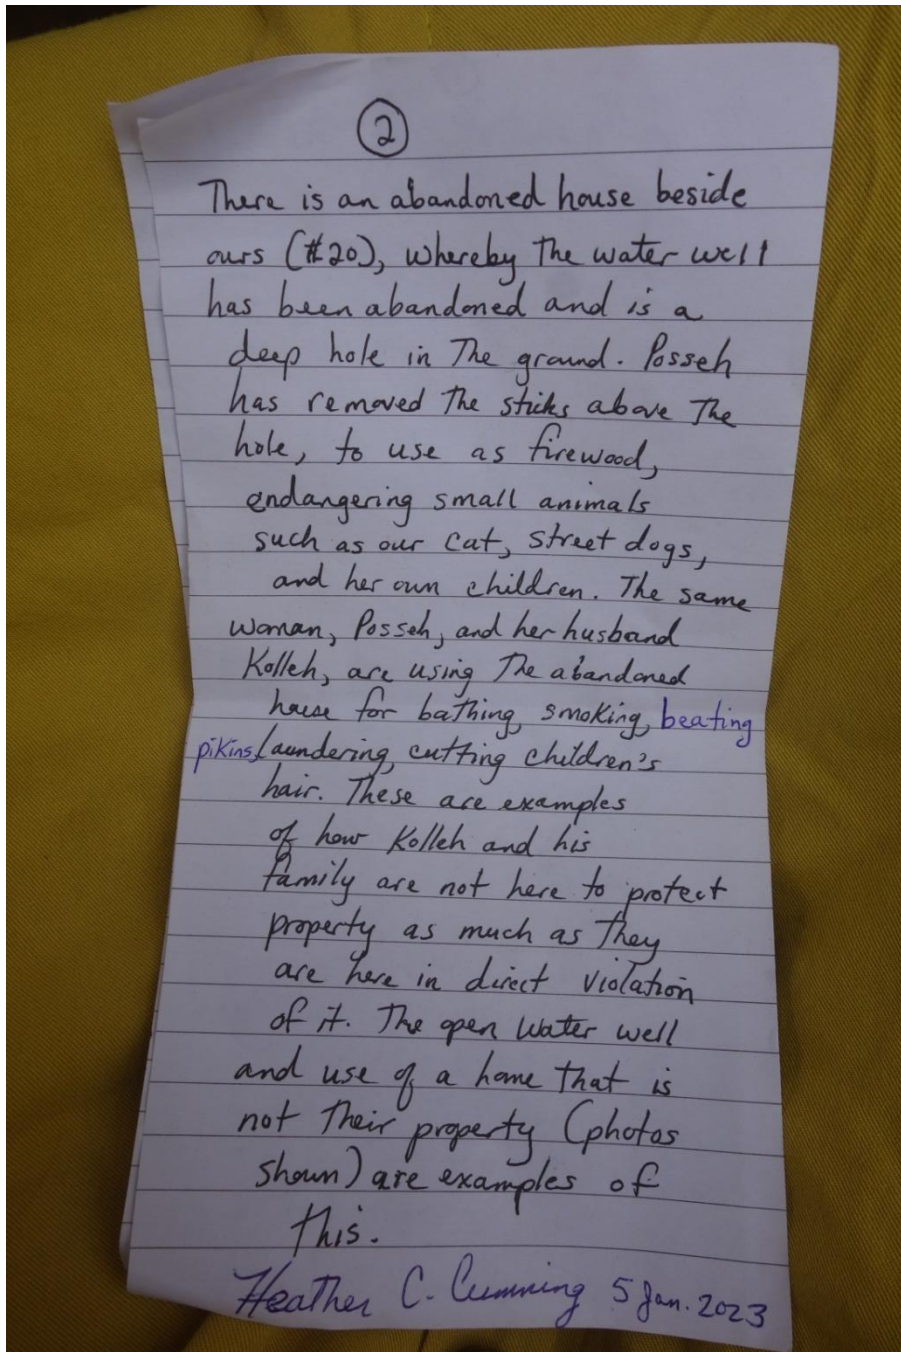 2
There is an abandoned house beside
ours (#20), whereby the water well
has been abandoned and is a
deep hole in the ground. Posseh
has removed the sticks above the
hole, to use as firewood,
endangering small animals
such as our cat, street dogs,
and her own children. The same
woman, Posseh, and her husband
Kolleh, are using the abandoned
house for bathing, smoking, beating
pikins, laundering, cutting children's
hair. These are examples
of how Kolleh and his
family are not here to protect
property as much as they
are here in direct violation
of it. The open water well
and use of a home that is
not their property (photos
shown) are examples of
this.
Heather C. Cumming 5 Jan. 2023